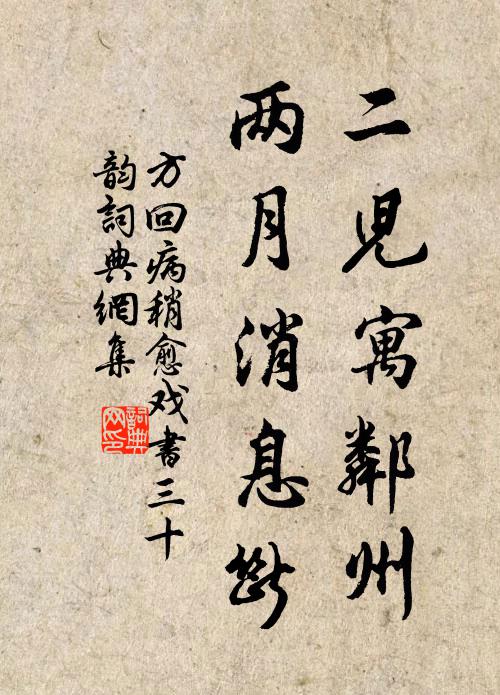 二児寓鄰州
两月消息断
方回病稍愈戏書三十
韵詞典網集
詞典
网印